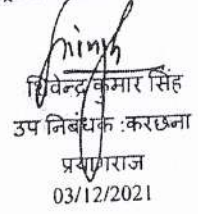 शिवेन्द्र कुमार सिंह
उप निबंधक :करछना
प्रयागराज
03/12/2021